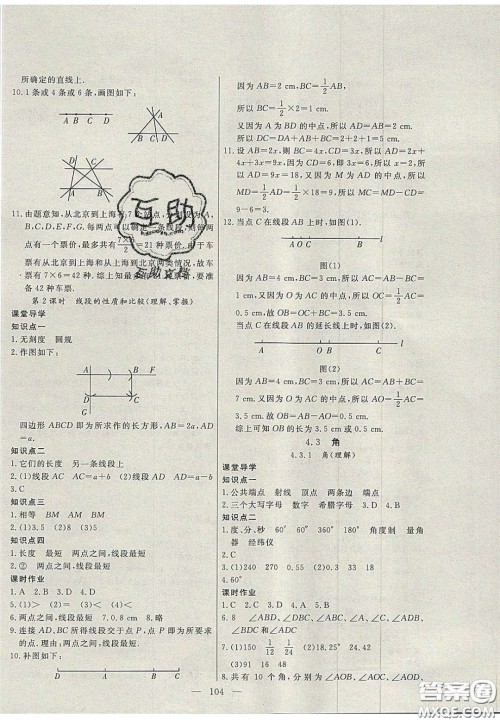 所确定的直线上.
10.1条或4条或6条,画图如下:
A B C D
A
B C D
D C
A B
11.由题意知,从北京到上海有7个站点,
B,C,D,E,F,G.
两点有一个票价,
=21种票价.由于车
票从北京到上海和从上海到北京两类情况,故车
票有7×6=42种.综上知最多有21种票价,要准
备42种车票.
第2课时 线段的性质和比较(理解、掌握)
课堂导学
知识点一
1.无刻度 圆规
2.作图如下:
A B F
D C
G
四边形ABCD即为所求作的长方形,AB=2a,
AD=a.
知识点二
1.它们的长度 另一条线段上
2.(1)略 (2)线段AC AC=a+b (3)线段AD AD=a-b
知识点三
1.相等 BM AM BM
2.(1)3.5 (2)3 (3)8
知识点四
1.长度 最短 两点之间,线段最短
2.② 两点之间,线段最短
课时作业
1.A 2.B 3.D 4.A
5.(1)> (2)= (3)< (4)<
6.两点之间,线段最短 7.3.6 8.1
9.连接AD、BC所得线段交于点P,点P即为河
源的位置,理由是:两点之间,线段最短.
10.补图如下:
D A C B
因为AB=2 cm,BC=1/2AB,
所以BC=1/2×2=1 cm.
又因为A为BD的中点,所以AD=AB=2 cm.
所以DC=DA+AB+BC=2+2+1=5 cm.
11.设AB=2x,则BC=4x,CD=3x,所以AD=2x+
4x+3x=9x.因为M为AD的中点,所以
MD=1/2AD=1/2×18=9,所以MC=MD-CD=
9-6=3.
12.当点C在线段AB上时,如图(1).
A O C B l
图(1)
因为AB=4 cm,BC=3 cm,所以AC=AB-BC=
1 cm.又因为O为AC的中点,所以OC=1/2AC=
0.5 cm.故OB=OC+BC=3.5 cm.
当点C在线段AB的延长线上时,如图(2).
A O B C l
图(2)
因为AB=4 cm,BC=3 cm,所以AC=AB+BC=
7 cm.又因为O为AC的中点,所以AO=1/2AC=
3.5 cm.故OB=AB-AO=0.5 cm.
综上可知OB的长度为3.5 cm或0.5 cm.
4.3 角
4.3.1 角(理解)
课堂导学
知识点一
1.公共端点 射线 顶点 两条边 端点
2.三个大写字母 数字 希腊字母 3.D
知识点二
1.度、分、秒 60° 60′ 360° 180° 角度制 量角
器 经纬仪
2.C
3.(1)240 (2)270 (3)38 15
4.60°
课时作业
1.C 2.C 3.B 4.D 5.C
6.8 ∠ADB、∠DBC、∠ABC、∠C、∠ADC、
7.(1)1/150 1/12 (2)1/24
(3)91 48
8.共有10个角,分别为∠AOB、∠AOC、∠AOD、
互助
互助文档
104
答案圈
MXQE.COM